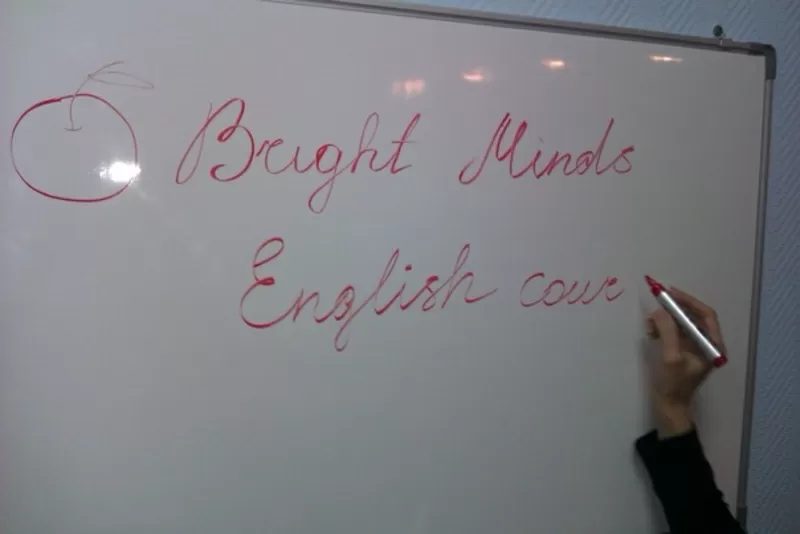 Bright Minds
English cour